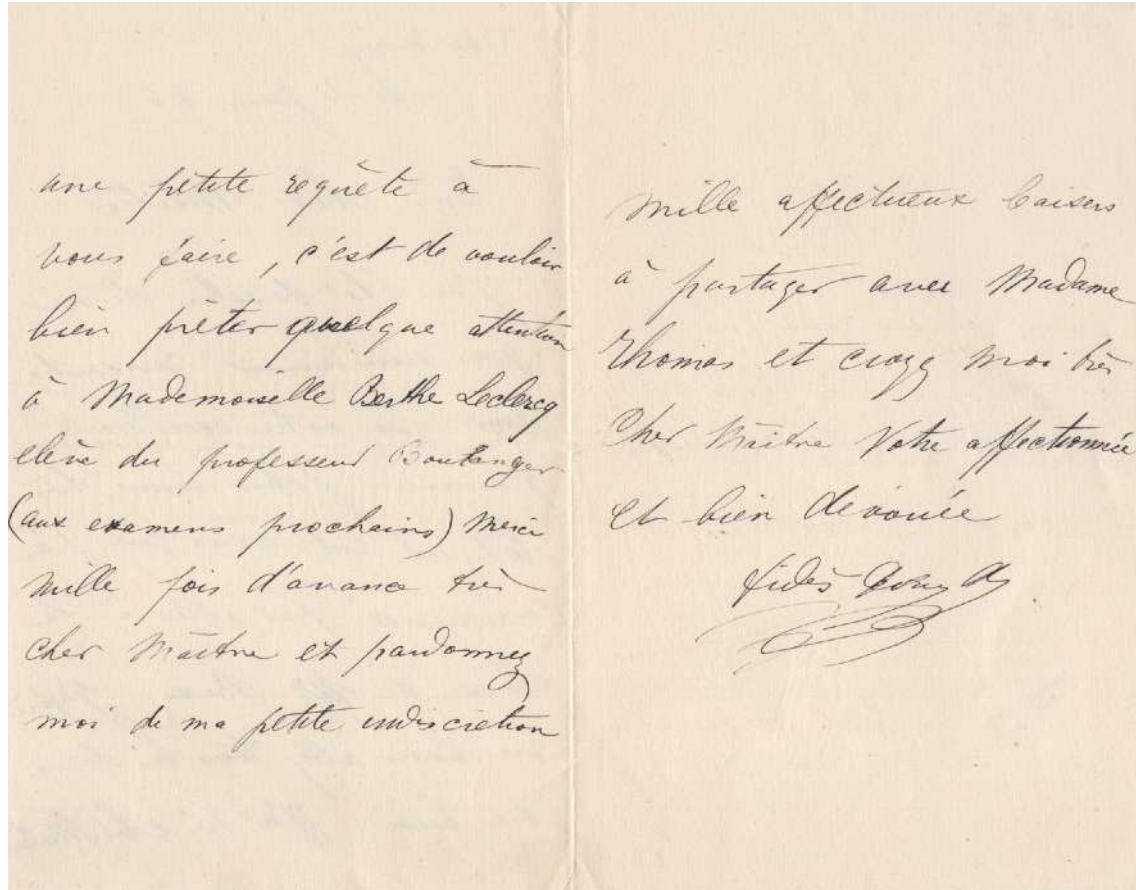 une petite requête à
vous faire, c'est de vouloir
bien prêter quelque attention
à Mademoiselle Berthe Leclercq
elève du professeur Boulanger
(aux examens prochains) Merci
mille fois d'avance très
cher Maître et pardonnez
moi de ma petite indiscretion
mille affectueux baisers
à partager avec Madame
Thomas et croyez moi très
cher Maître Votre affectionnée
et bien dévouée
fidès